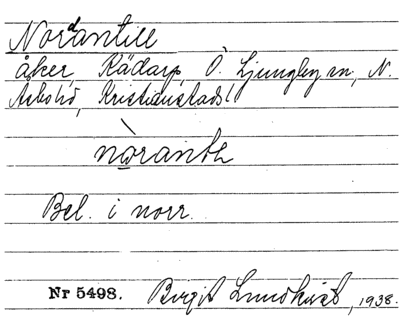 Nordantill
åker, Rädarp, Ö. Ljungby sn, N.
Åsbo hd, Kristianstads l
nòranth
Bel. i norr.
Nr 5498. Birgit Lundkvist, 1938.